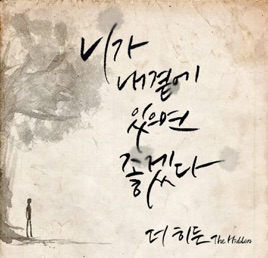 니가
내곁에
있으면
좋겠다
더 히든 The Hidden